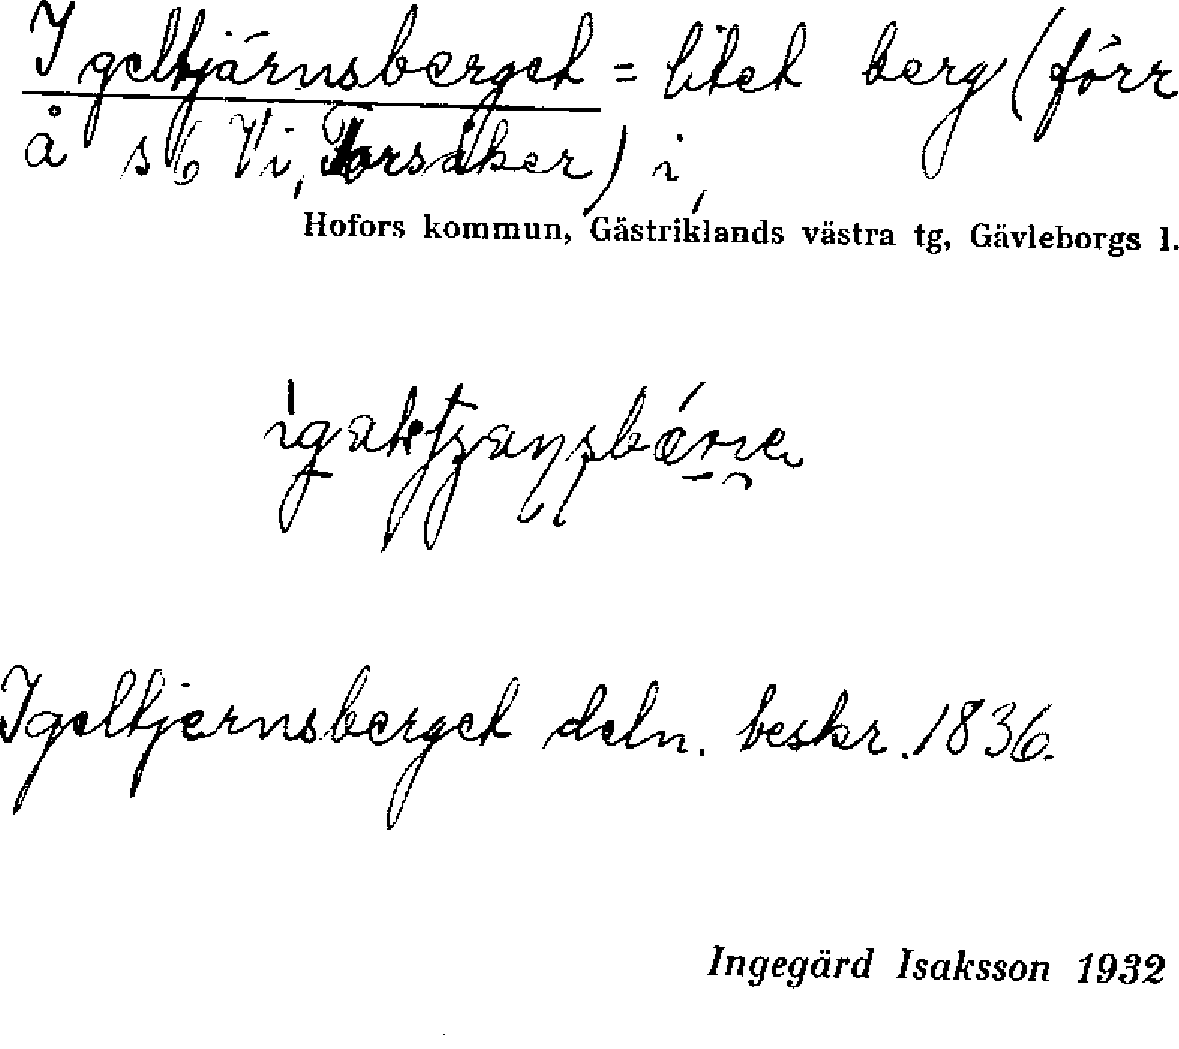 Igeltjärnsberget = litet berg (förr
å s6 Vi, Torsåker) i,
Hofors kommun, Gästriklands västra tg, Gävleborgs l.
Igeltjernsberget deln. beskr. 1836.
Ingegärd Isaksson 1932